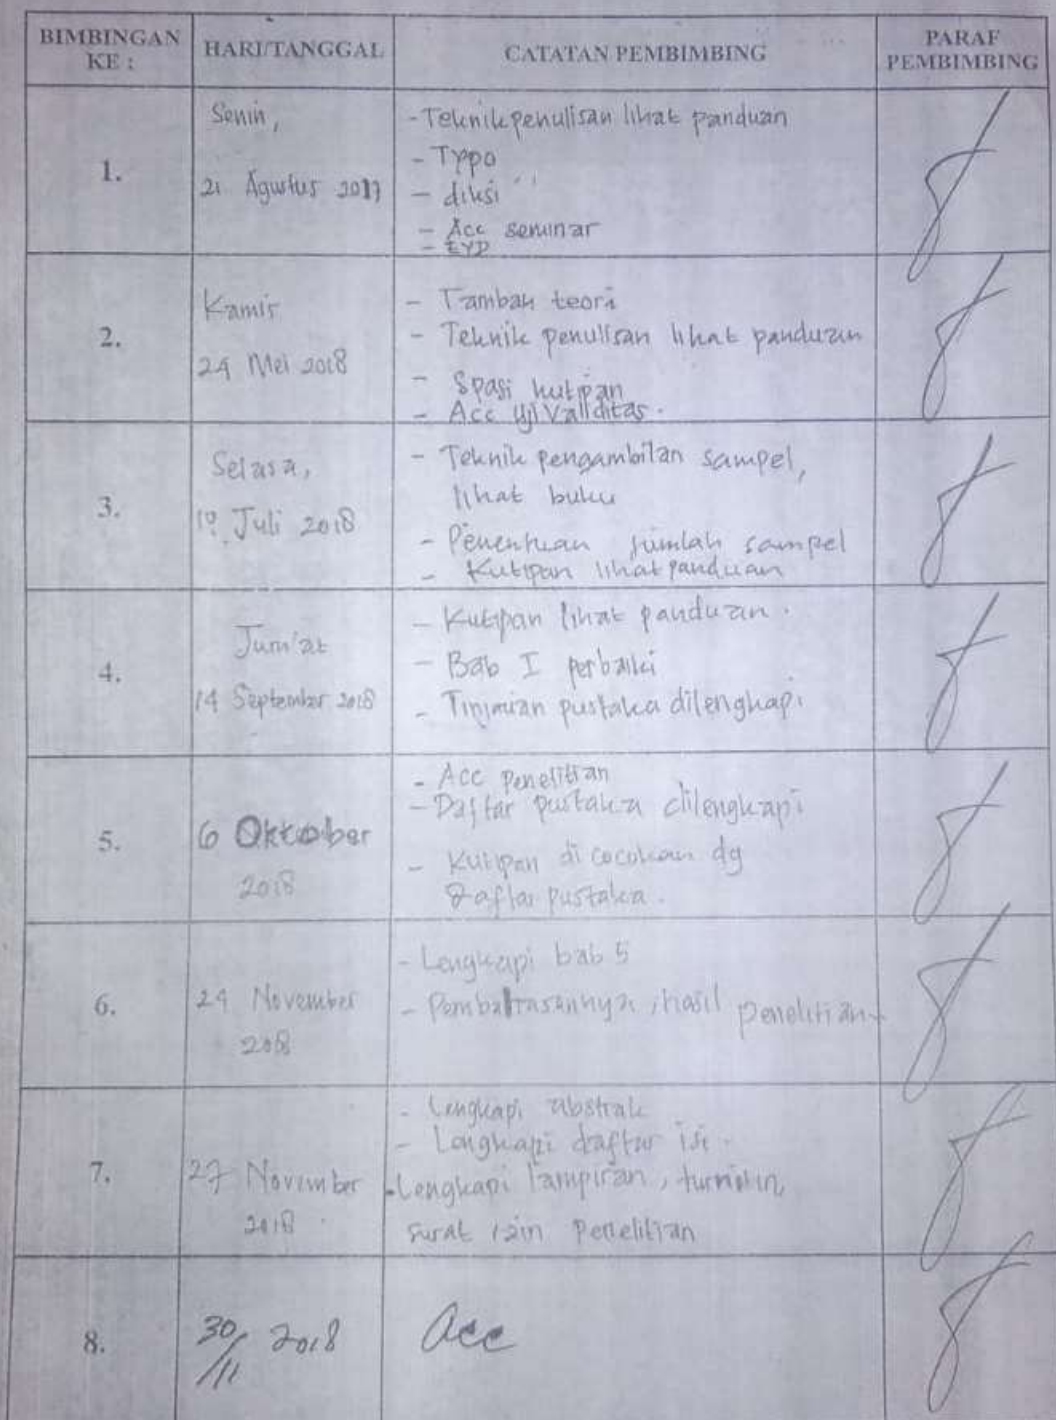 BIMBINGAN KE :
HARI/TANGGAL
CATATAN PEMBIMBING
PARAF PEMBIMBING
1.
Senin,
21 Agustus 2017
- Teknik penulisan lihat panduan
- Typo
- diksi
- Acc seminar
- EYD
2.
Kamis
24 Mei 2018
- Tambah teori
- Teknik penulisan lihat panduan
- Spasi kutipan
- Acc uji validitas.
3.
Selasa,
10 Juli 2018
- Teknik pengambilan sampel,
lihat buku
- Penentuan jumlah sampel
- Kutipan lihat panduan
4.
Jum'at
14 September 2018
- Kutipan lihat panduan.
- Bab I perbaiki
- Tinjauan pustaka dilengkapi
5.
6 Oktober
2018
- Acc penelitian
- Daftar pustaka dilengkapi
- Kutipan di cocokan dg
Daftar pustaka.
6.
24 November
2018
- Lengkapi bab 5
- hasil penelitian
7.
27 November
2018
- Lengkapi abstrak
- Lengkapi daftar isi.
- Lengkapi lampiran, turnitin,
surat izin penelitian
8.
30/11 2018
acc